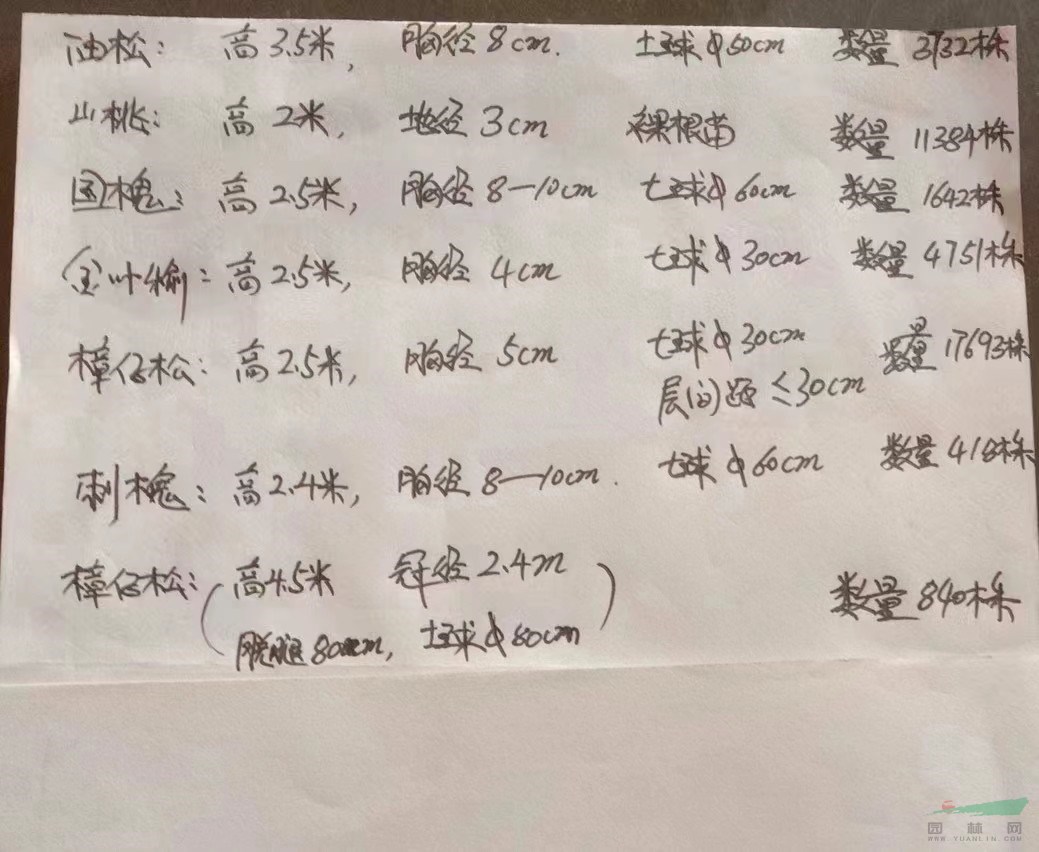 油松: 高3.5米, 胸径8cm. 土球φ50cm 数量3732株
山桃: 高2米, 地径3cm 裸根苗 数量11384株
国槐: 高2.5米, 胸径8—10cm 土球φ60cm 数量1642株
金叶榆: 高2.5米, 胸径4cm 土球φ30cm 数量4751株
樟仔松: 高2.5米, 胸径5cm 土球φ30cm 数量17693株
层间距≤30cm
刺槐: 高2.4米, 胸径8—10cm. 土球φ60cm 数量418株
樟仔松: (高4.5米 冠径2.4m) 数量840株
脱腿80cm, 土球φ80cm
园林网
WWW.YUANLIN.COM